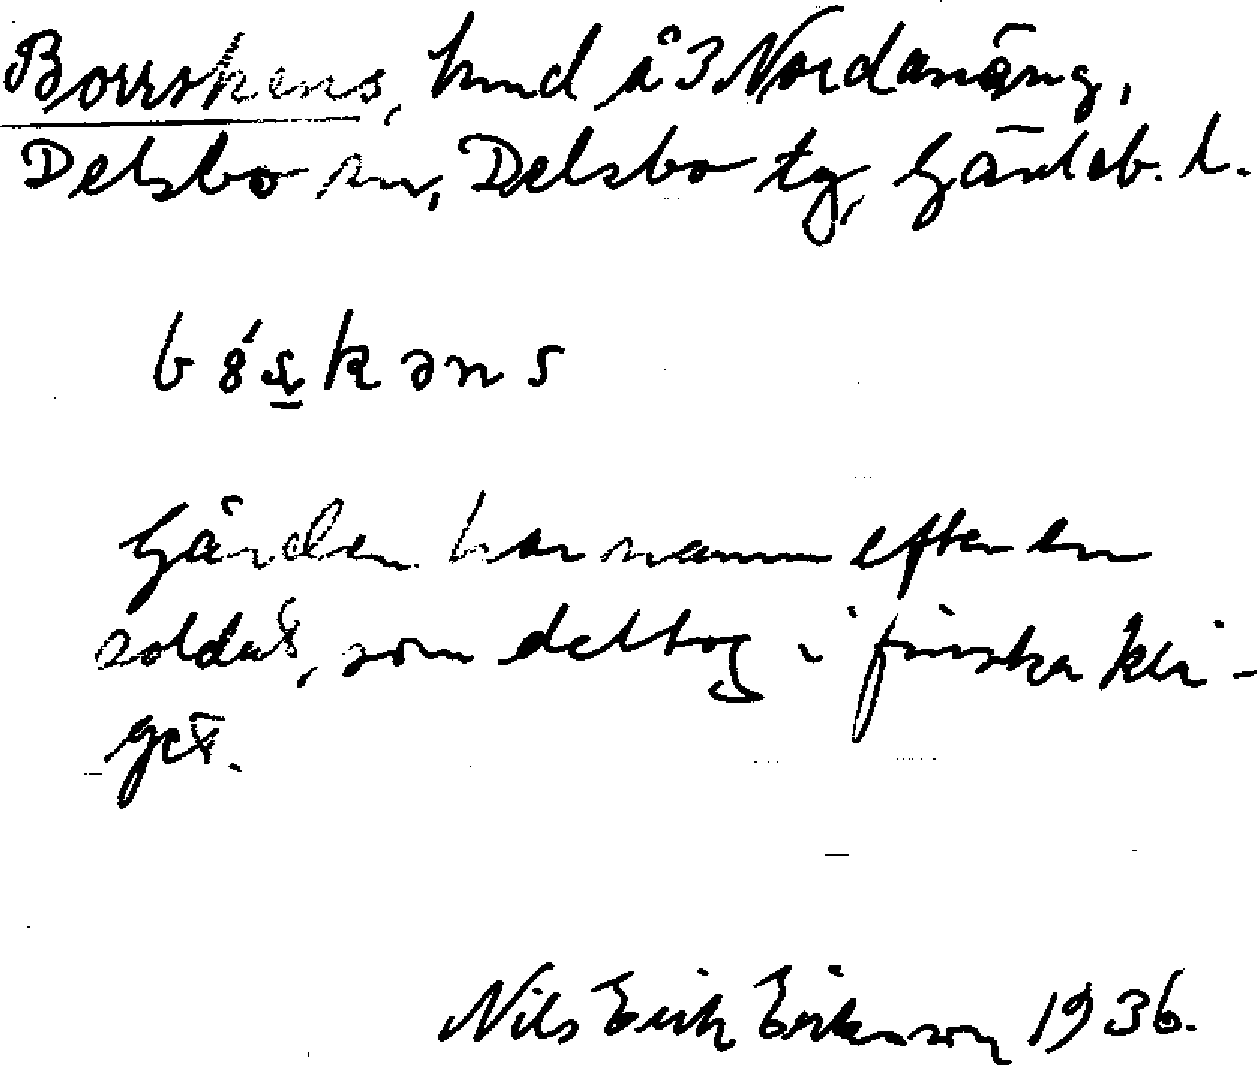 Borrskens, hmd å 3 Nordanäng,
Delsbo sn, Delsbo tg, Gävleb. l.
Gården har namn efter en
soldat, som deltog i finska kri-
get.
Nils Erik Eriksson 1936.